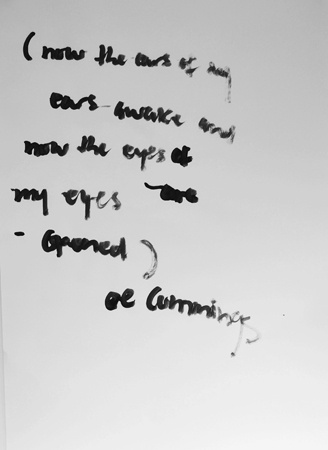 (now the ears of my
ears awake and
now the eyes of
my eyes are
- Opened)
ee Cummings